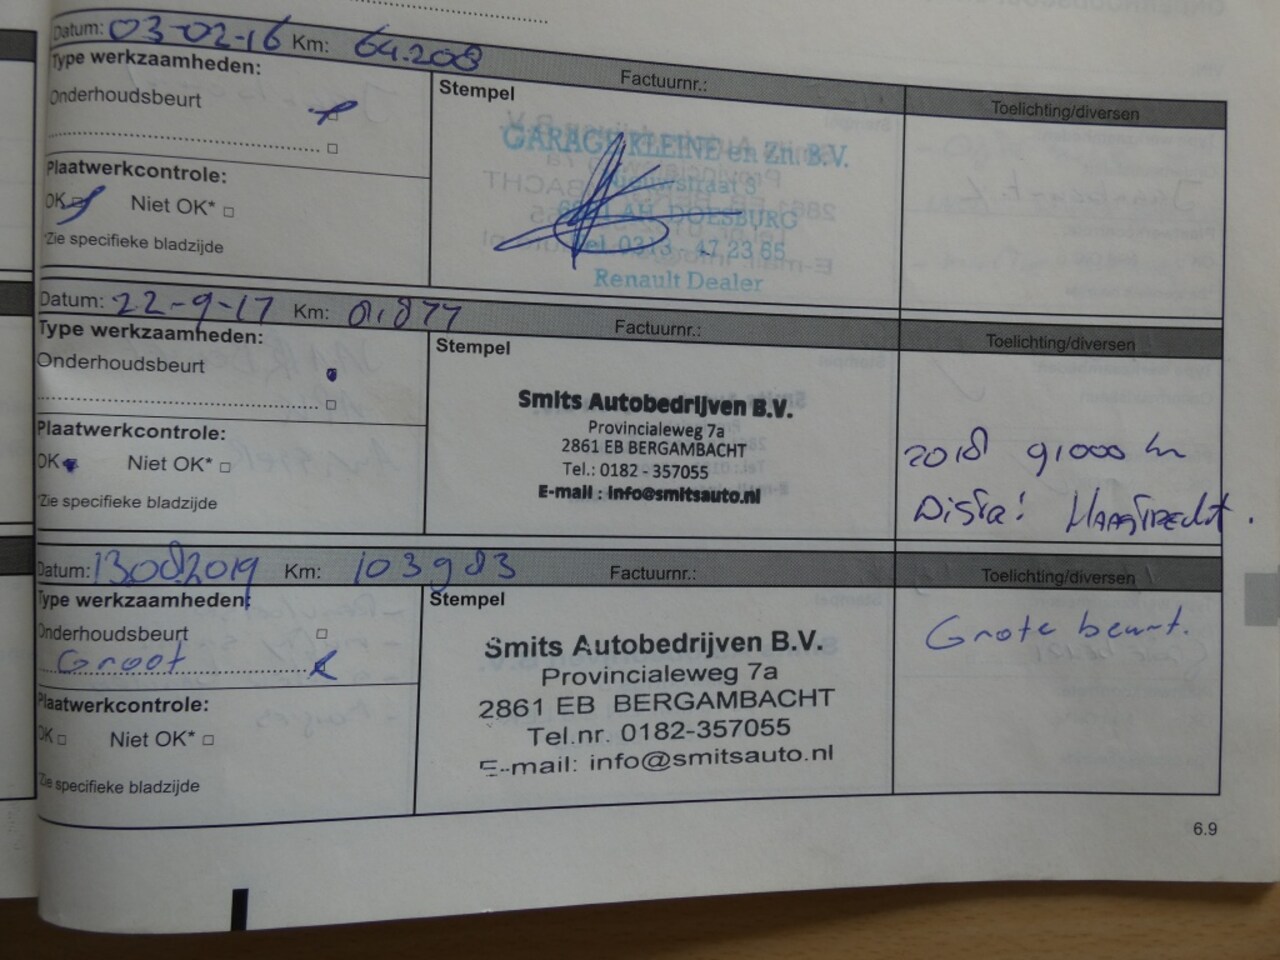 Datum: 03-02-16 Km: 64.208 Factuurnr.:
Toelichting/diversen
Type werkzaamheden:
Stempel
Onderhoudsbeurt
GARAGE KLEINE en Zn. B.V.
Nieuwstraat 8
AH DOESBURG
Tel. 0313 - 47 23 65
Renault Dealer
Plaatwerkcontrole:
OK Niet OK*
*Zie specifieke bladzijde
Datum: 22-9-17 Km: 81.877 Factuurnr.:
Toelichting/diversen
Type werkzaamheden:
Stempel
Onderhoudsbeurt
Smits Autobedrijven B.V.
Provincialeweg 7a
2861 EB BERGAMBACHT
Tel.: 0182 - 357055
E-mail : info@smitsauto.nl
Plaatwerkcontrole:
OK Niet OK*
*Zie specifieke bladzijde
2018 91000 km
Haastrecht.
Datum: 13082019 Km: 103983 Factuurnr.:
Toelichting/diversen
Type werkzaamheden:
Stempel
Onderhoudsbeurt
Groot
Smits Autobedrijven B.V.
Provincialeweg 7a
2861 EB BERGAMBACHT
Tel.nr. 0182-357055
E-mail: info@smitsauto.nl
Grote beurt.
Plaatwerkcontrole:
OK Niet OK*
*Zie specifieke bladzijde
6.9